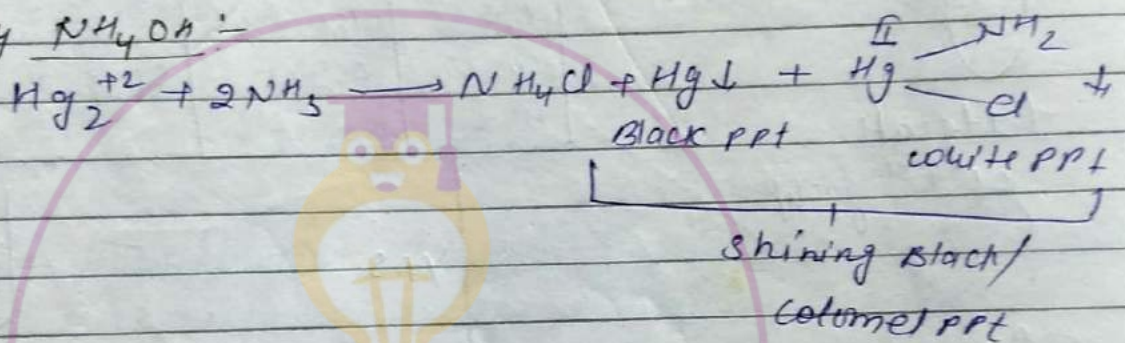 NH₄OH :-
Hg₂⁺² + 2NH₃ ⟶ NH₄Cl + Hg↓ + Hg(II)(NH₂)(Cl) ↓
Black ppt white ppt
Shining Black/
Colomel ppt